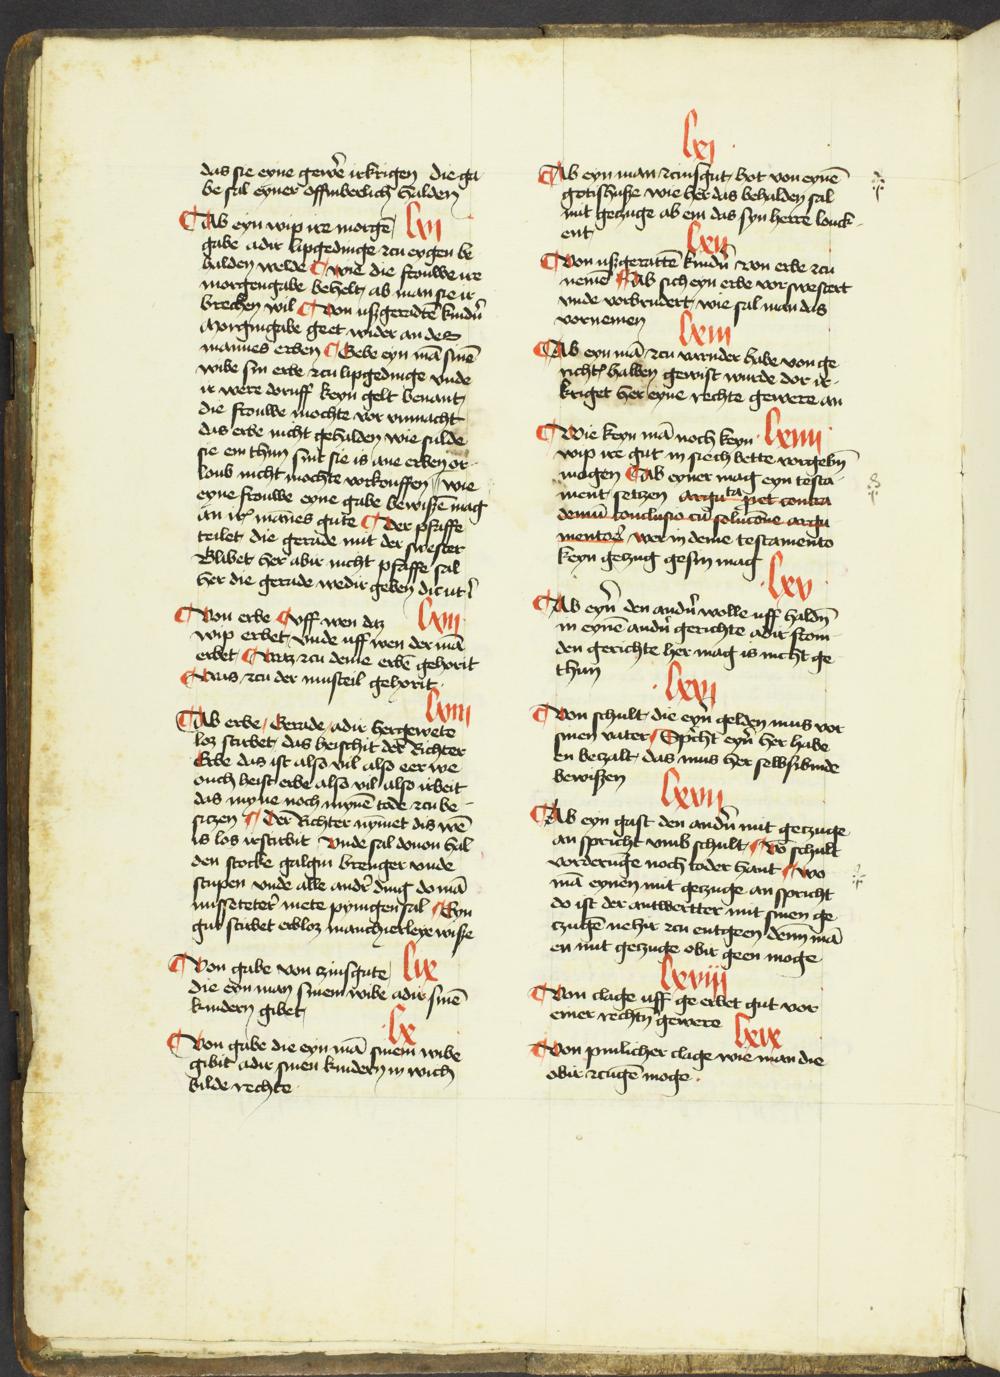 das sie eyne gewer irkrigen die ga
be sal eyner offinberlich halden
Ab eyn wip ire morgē lvi
gabe adir lipgedinge zcu eygen be
halden welde wie die frouwe ire
morgengabe behelt ab man sie ir
brechen wil Von usgeradtē kindn̄
Morgingabe geet wider an des
mannes erben Gebe eyn mā sinē
wibe sin erbe zcu lipgedinge vnde
ir were doruff keyn gelt benant
die frouwe mochte vor vnmacht
das erbe nicht gehalden wie sulde
sie em thun sint sie is ane erben or
loub nicht mochte vorkouffen wie
eyne frouwe eyne gabe bewisē mag
an ir mānes gute Der pfaffe
teilet die gerade mit der swester
Blibet her abir nicht pfaffe sal
her die gerade wedir geben
Von erbe Uff wen daz lvii
wip erbet vnde uff wen der mā
erbet Waz zcu deme erbē gehorit
Was zcu der musteil gehorit
lviii
Ab erbe Gerade adir hergewete
loz stirbet das heischit der Richter
Erbe das ist also vil also eer we
ouch heist erbe also vil also irbeit
das myne noch mynē tode zcu be
siczen Der Richter nȳmet dis wē
is los irstirbit Vnde sal douon hal
den stocke galgin brenger vnde
stupen vnde alle andr̄ ding do mā
missetetir mete pynigen sal Eyn
gut stirbet erbloz mancherleye wise
Von gabe von czinsgute lix
die eyn man sinem wibe adir sinē
kindern gibet
lx
Von gabe die eyn mā sinem wibe
gibit adir sinen kindern in wich
bilde rechte
lxi
Ab eyn man zcinsgut hot von eynē
gotishuse wie her das behalden sal
mit geczuge ab em das syn herre louck
ent
lxii
Von usgerattē kindn̄ von erbe zcu
nemē Ab sich eyn erbe vorswestert
vnde vorbrudert wie sal man das
vornemen
lxiii
Ab eyn mā zcu varnder habe von ge
richtis halben gewist wurde dor ir
kriget her eyne rechte gewere an
Wie keyn mā noch keyn lxiiii
wip ire gut in siechbette vorgebn̄
mogen Ab eyner mag eyn testa
ment setczen contra
conclusio cū
wer in deme testamento
keyn geczug gesin mag
lxv
Ab eyn̄ den andn̄ wolle uff haldn̄
in eynē andn̄ gerichte adir from
den gerichte her mag is nicht ge
thun
lxvi
Von schult die eyn̄ gelden mus vor
sinen vater Spricht eyn̄ her habe
en beczalt das mus her selbsibinde
bewisen
lxvii
Ab eyn gast den andn̄ mit geczuge
an spricht vmb schult Vō schult
vorderūge noch toder hant wo
mā eynen mit geczuge an spricht
do ist der antwertter mit sinen ge
czugē nehir zcu entgeen denn mā
en mit geczuge obir geen moge
lxviii
Von clage uff ge erbet gut vor
einer rechtn̄ gewere lxix
Von pinlicher clage wie man die
obir zcugē moge